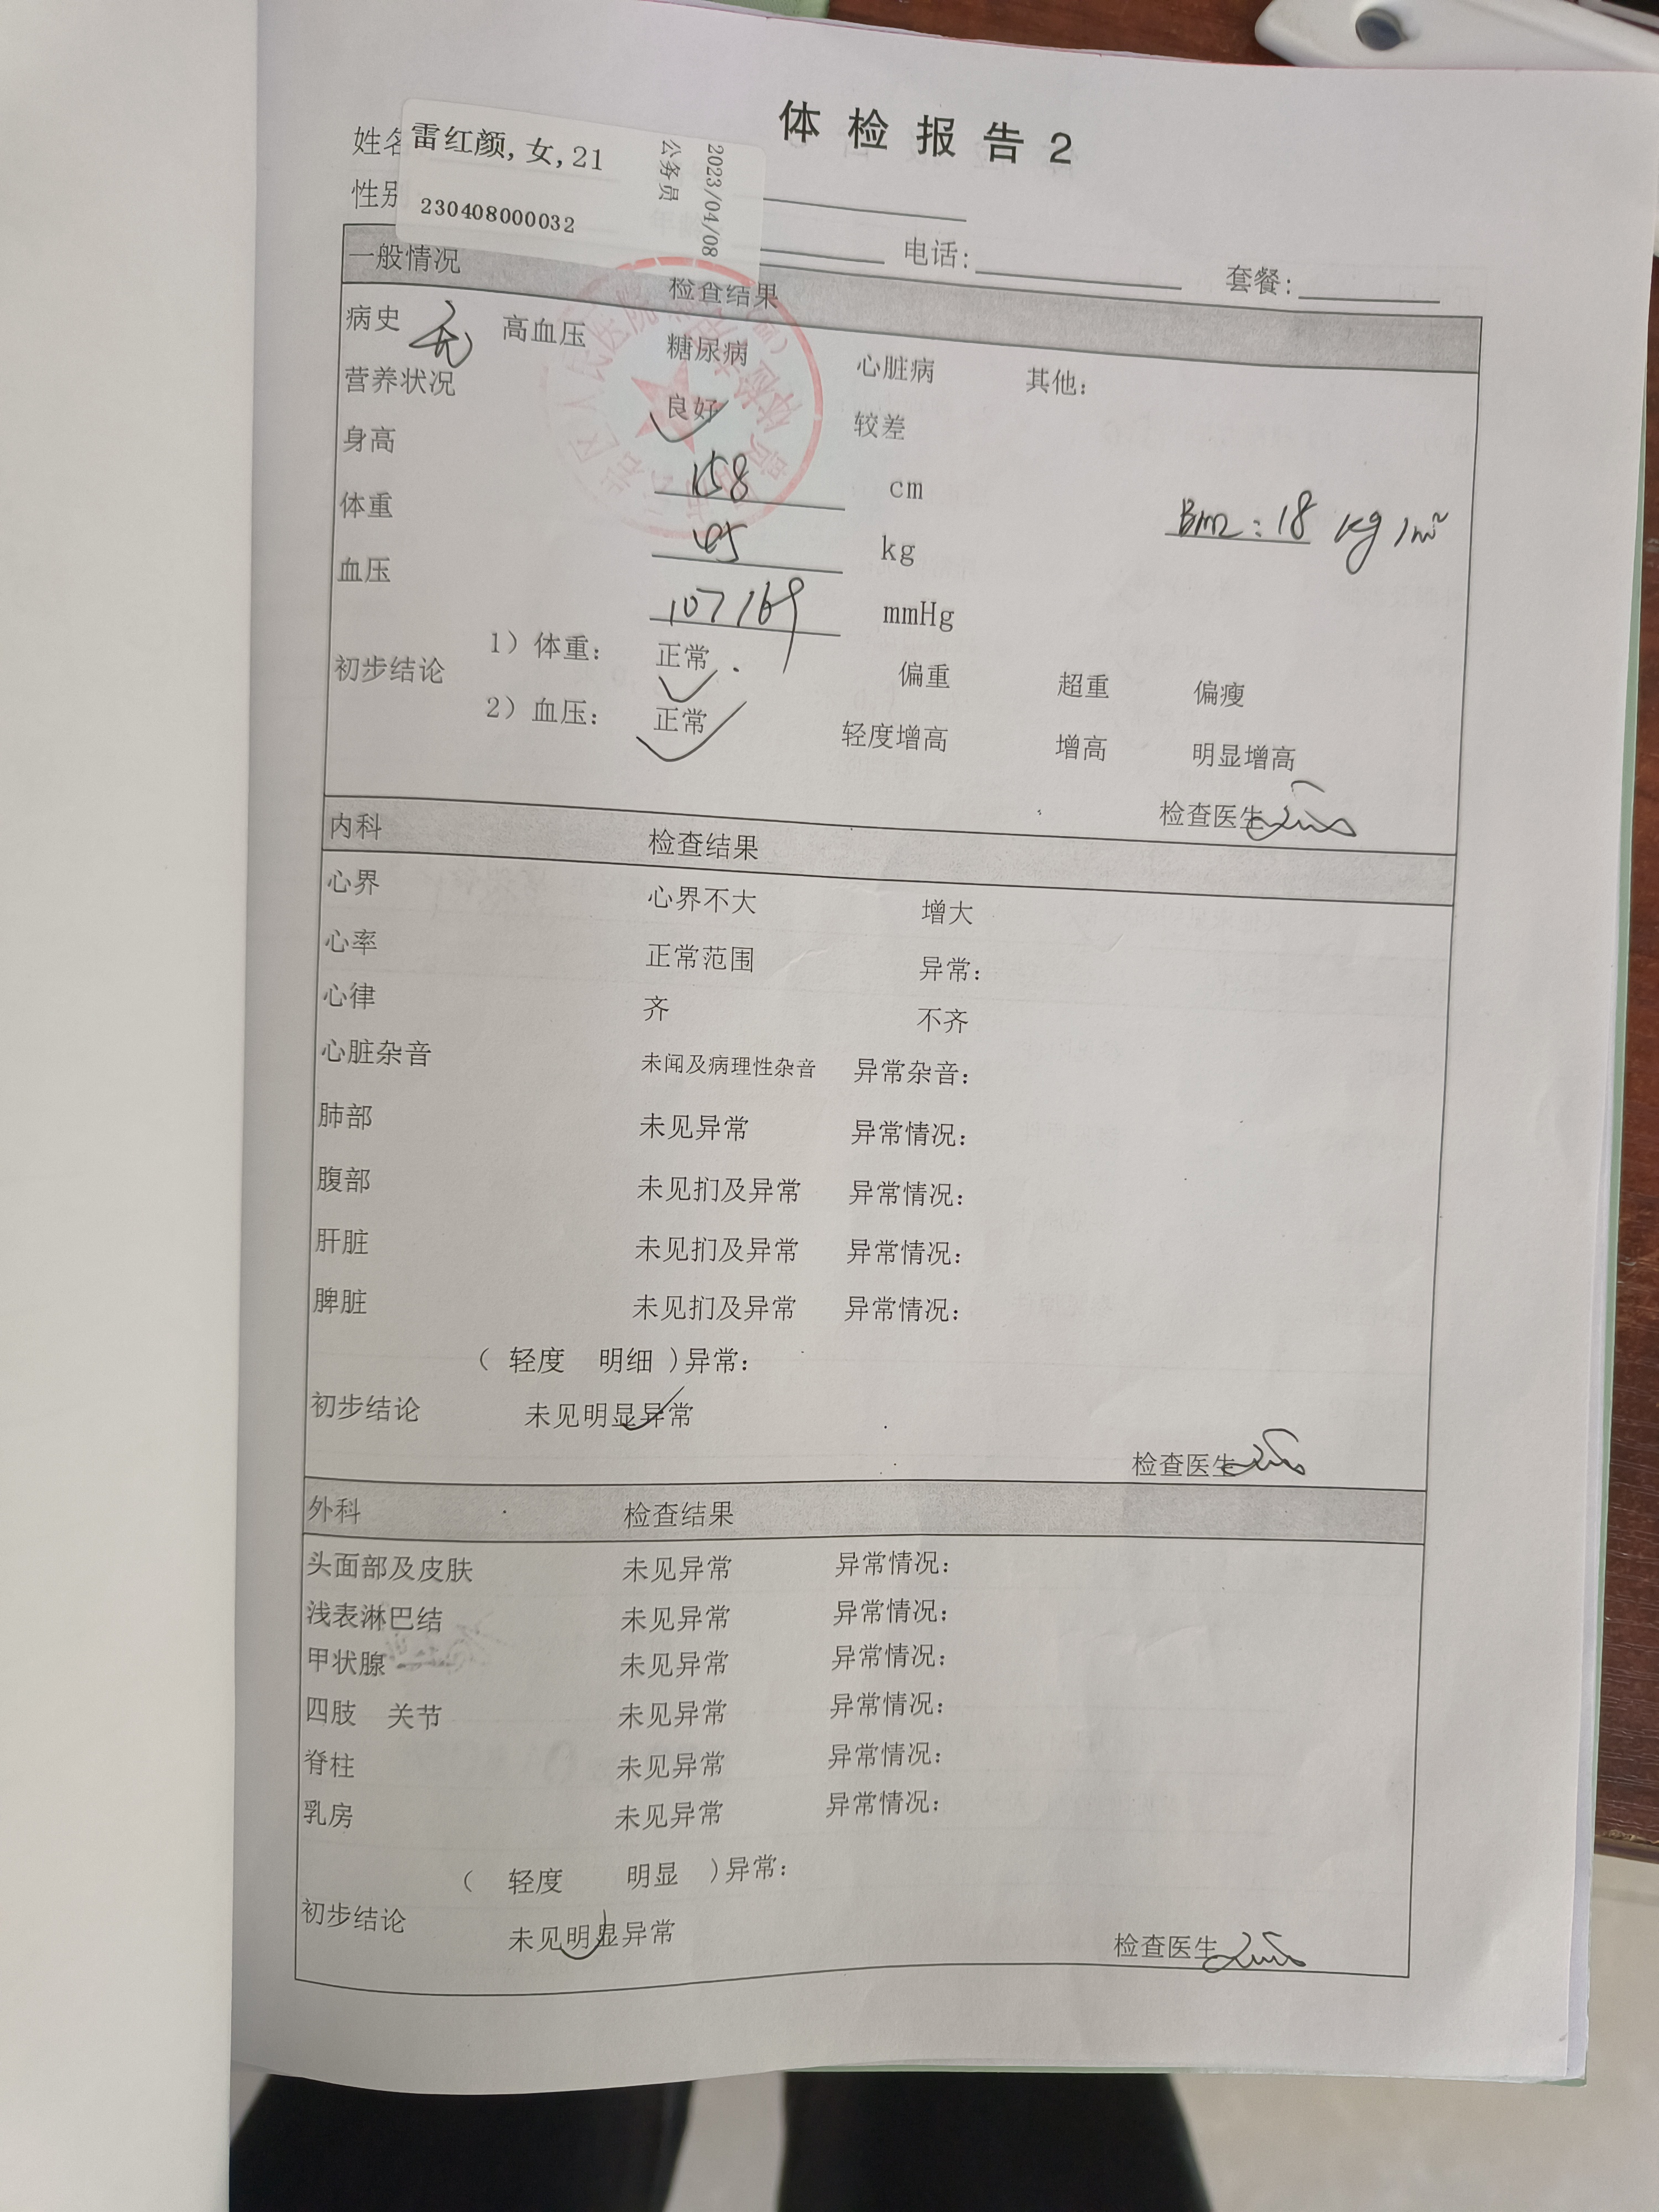 体检报告2
姓名 雷红颜,女,21
性别 230408000032
公务员
2023/04/08
电话: 套餐:
一般情况 检查结果
病史 无 高血压 糖尿病 心脏病 其他:
营养状况 良好 较差
身高 158 cm
体重 45 kg BMI:18 kg/m²
血压 107/69 mmHg
初步结论 1）体重: 正常 偏重 超重 偏瘦
2）血压: 正常 轻度增高 增高 明显增高
检查医生
内科 检查结果
心界 心界不大 增大
心率 正常范围 异常:
心律 齐 不齐
心脏杂音 未闻及病理性杂音 异常杂音:
肺部 未见异常 异常情况:
腹部 未见扪及异常 异常情况:
肝脏 未见扪及异常 异常情况:
脾脏 未见扪及异常 异常情况:
（ 轻度 明细 ）异常:
初步结论 未见明显异常
检查医生
外科 检查结果
头面部及皮肤 未见异常 异常情况:
浅表淋巴结 未见异常 异常情况:
甲状腺 未见异常 异常情况:
四肢 关节 未见异常 异常情况:
脊柱 未见异常 异常情况:
乳房 未见异常 异常情况:
（ 轻度 明显 ）异常:
初步结论 未见明显异常
检查医生